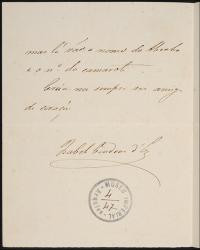 mas lá vão o nome do Theatro
e o nº do camarote.
Creia-me sempre sua amiga
de coração
Isabel Condessa d'Eu
MUSEU IMPERIAL
4
47